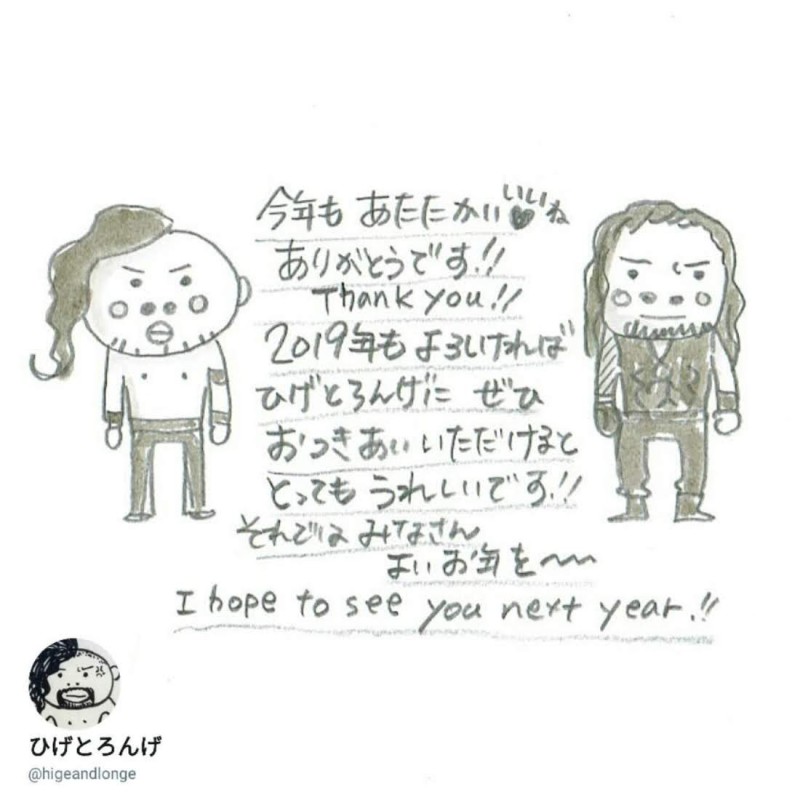 今年も あたたかい いい♥ね
ありがとうです!!
Thank you!!
2019年も よろしければ
ひげとろんげに ぜひ
おつきあい いただけると
とっても うれしいです!!
それでは みなさん
よいお年を〜〜
I hope to see you next year.!!
ひげとろんげ
@higeandlonge